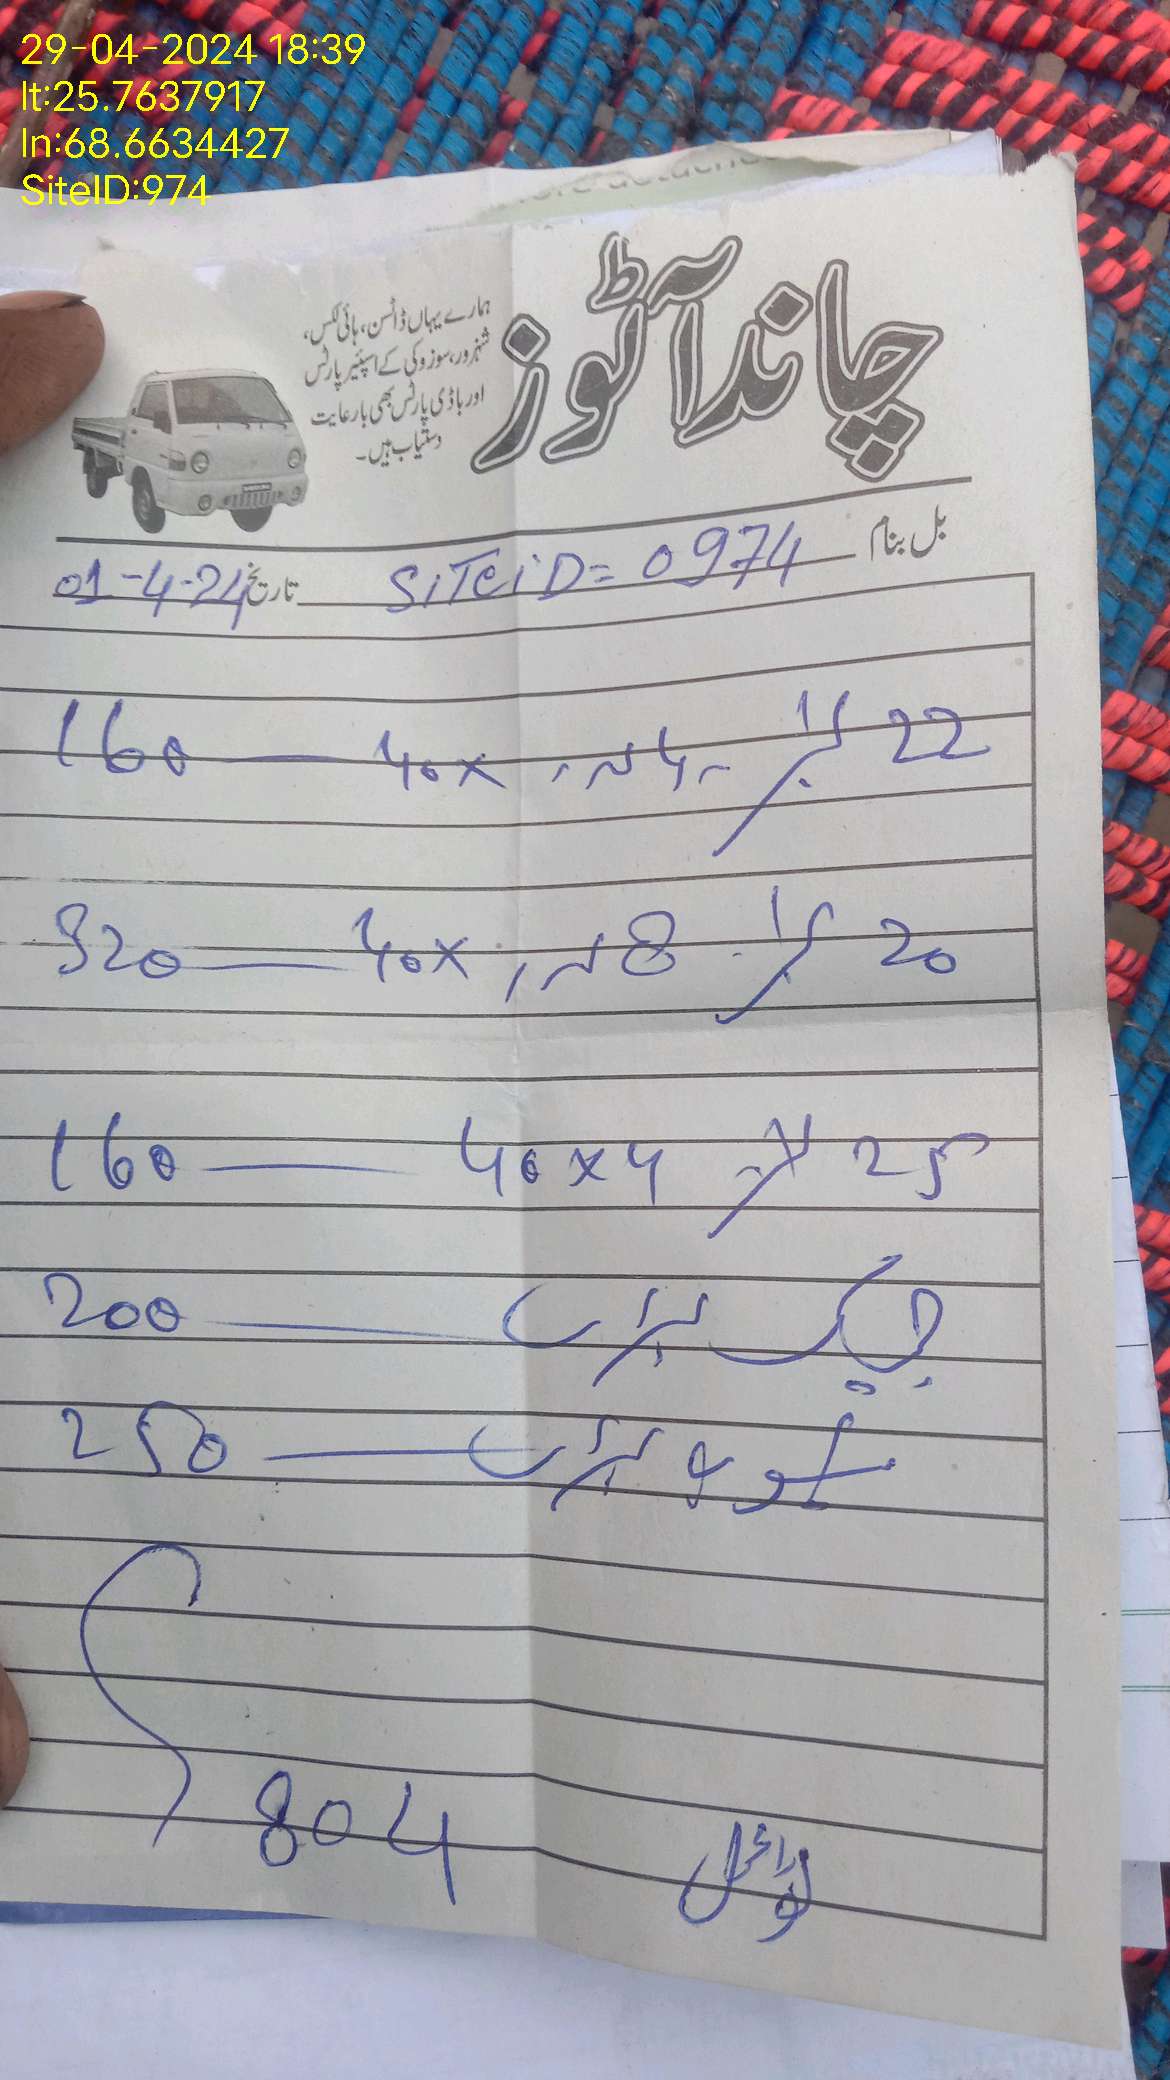 29-04-2024 18:39
lt:25.7637917
ln:68.6634427
SiteID:974
چاند آٹوز
ہمارے یہاں ڈاٹسن، ہائی لکس،
شہزور، سوزوکی کے اسپئیر پارٹس
اور باڈی پارٹس بھی بارعایت
دستیاب ہیں۔
بل بنام SiTeiD= 0974 تاریخ 01-4-24
22 4 40x 160
20 8 40x 320
25 40x4 160
200
250
804